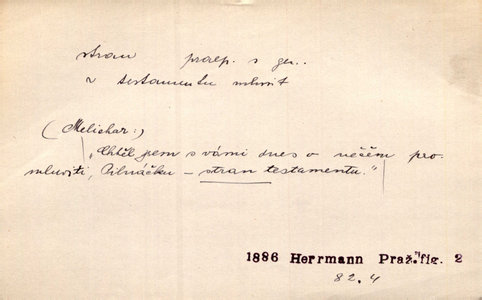 stran praep. s gen.
v testamentu mluvit
(Melichar:)
„Chtěl jsem s vámi dnes o něčem pro-
mluviti, Pilnáčku – stran testamentu."
1886 Herrmann Praž. fig. 2
82.4